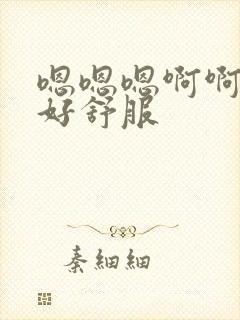 嗯嗯嗯啊啊
好舒服
秦细细